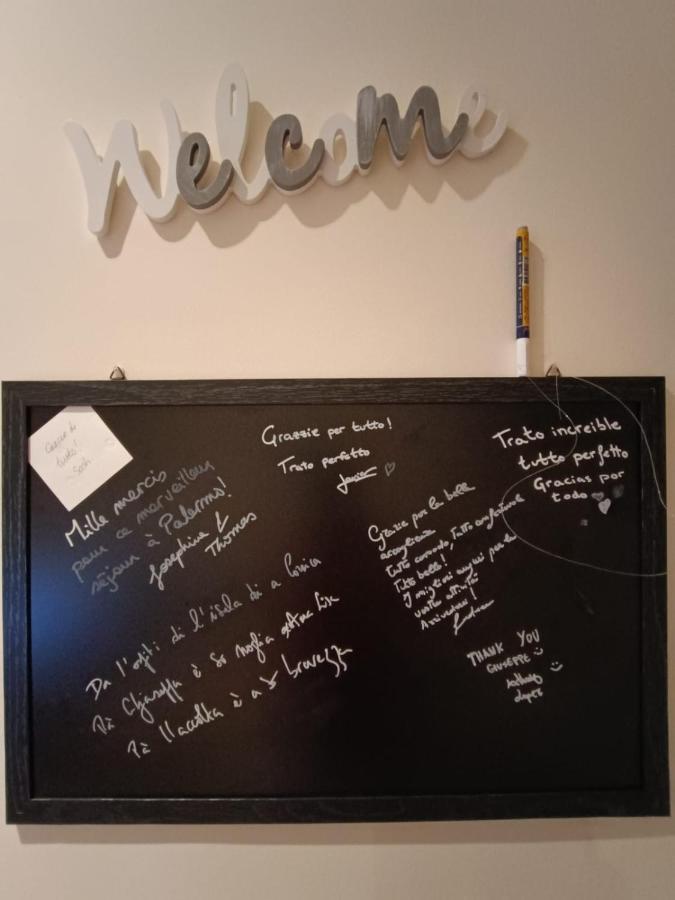 Welcome
tutto!
Mille mercis
pour ce merveilleux
séjour à Palermo!
Josephine &
Thomas
Grazzie per tutto!
Trato perfetto
Javier
Trato increible
tutto perfetto
Gracias por
todo
Grazie per la bella
accoglienza
tutto comodo, tutto confortevole
Tutto bello!
I migliori auguri per la
vostra attività
Arrivederci!
Da l'ospiti di l'isula di a
Pà
Pà l'accolta è a so bravezza
THANK YOU
GIUSEPPE
Anthony
Lopez